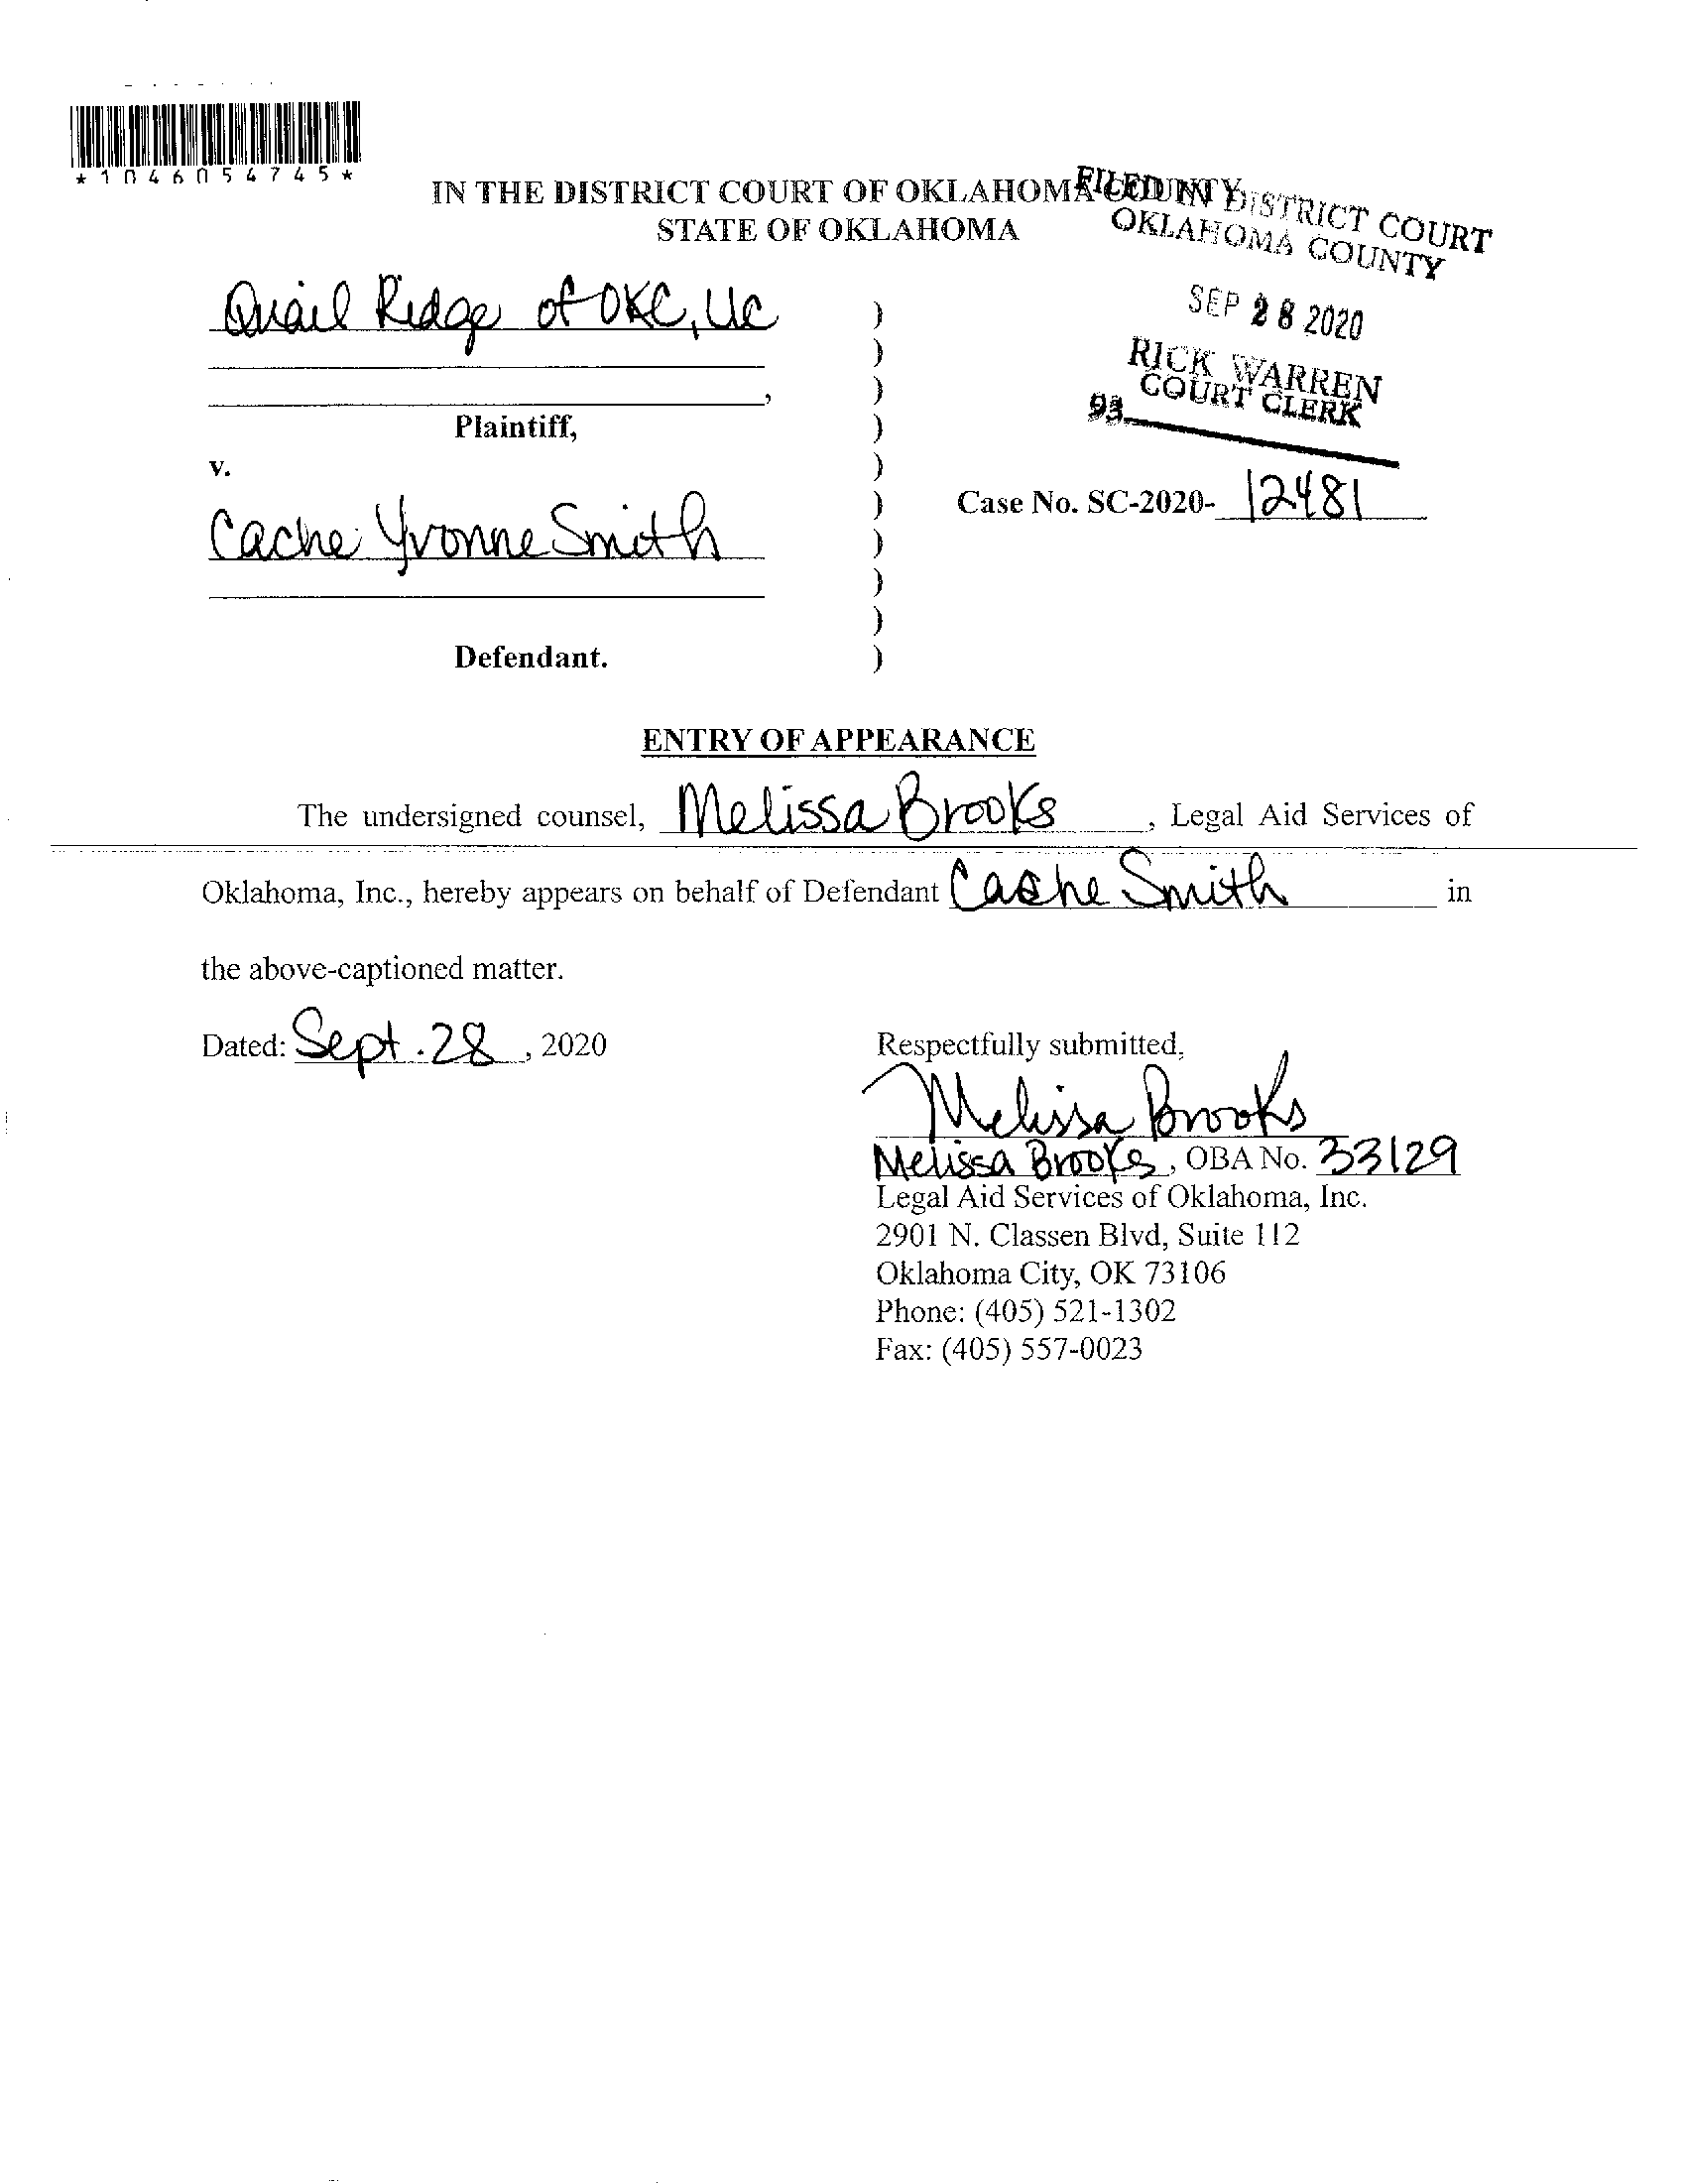 *1046054745*
IN THE DISTRICT COURT OF OKLAHOMA COUNTY
STATE OF OKLAHOMA
FILED IN DISTRICT COURT
OKLAHOMA COUNTY
SEP 28 2020
RICK WARREN
COURT CLERK
93
Quail Ridge of OKC, LLC )
)
, )
Plaintiff, )
v. )
Case No. SC-2020- 12481
Cache Yvonne Smith )
)
)
Defendant. )
ENTRY OF APPEARANCE
The undersigned counsel, Melissa Brooks, Legal Aid Services of
Oklahoma, Inc., hereby appears on behalf of Defendant Cache Smith in
the above-captioned matter.
Dated: Sept. 28, 2020
Respectfully submitted,
Melissa Brooks
Melissa Brooks, OBA No. 33129
Legal Aid Services of Oklahoma, Inc.
2901 N. Classen Blvd, Suite 112
Oklahoma City, OK 73106
Phone: (405) 521-1302
Fax: (405) 557-0023